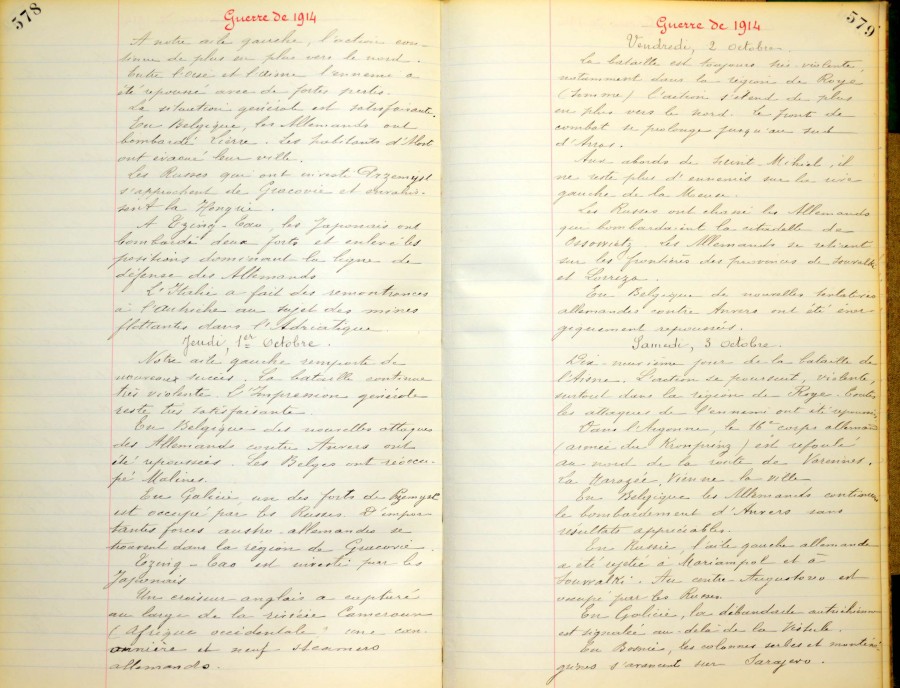 378
Guerre de 1914
A notre aile gauche, l'action con-
tinue de plus en plus vers le nord.
Entre l'Oise et l'Aisne l'ennemi a
été repoussé avec de fortes pertes.
La situation générale est satisfaisante.
En Belgique, les Allemands ont
bombardé Lierre. Les habitants d'Alost
ont évacué leur ville.
Les Russes qui ont investi Przemysl
s'approchent de Cracovie et envahis-
sent la Hongrie.
A Tzing-Tao, les Japonais ont
bombardé deux forts et enlevé les
positions dominant la ligne de
défense des Allemands
L'Italie a fait des remontrances
à l'Autriche au sujet des mines
flottantes dans l'Adriatique.
Jeudi, 1er Octobre.
Notre aile gauche remporte de
nouveaux succès. La bataille continue
très violente. L'Impression générale
reste très satisfaisante.
En Belgique des nouvelles attaques
des Allemands contre Anvers ont
été repoussées. Les Belges ont réoccu-
pé Malines.
En Galicie un des forts de Pzemysl
est occupé par les Russes. D'impor-
tantes forces austro-allemandes se
trouvent dans la région de Cracovie.
Tzing-Tao est investi par les
Japonais
Un croiseur anglais a capturé
au large de la rivière Cameroun
(Afrique occidentale) une can-
onnière et neuf steamers
allemands.
379
Guerre de 1914
Vendredi, 2 Octobre.
La bataille est toujours très violente,
notamment dans la région de Roye
(Somme) l'action s'étend de plus
en plus vers le nord. Le front de
combat se prolonge jusqu'au sud
d'Arras.
Aux abords de Saint-Mihiel, il
ne reste plus d'ennemis sur la rive
gauche de la Meuse.
Les Russes ont chassé les Allemands
qui bombardaient la citadelle de
Ossowietz. Les Allemands se retirent
sur les frontières des provinces de Souvalki
et Lomza.
En Belgique de nouvelles tentatives
allemandes contre Anvers ont été éner-
giquement repoussées.
Samedi, 3 Octobre.
Dix-neuvième jour de la bataille de
l'Aisne. L'action se poursuit, violente,
surtout dans la région de Roye. Toutes
les attaques de l'ennemi ont été repoussées
Dans l'Argonne, le 16e corps allemand
(armée du Kronprinz) est refoulé
au nord de la route de Varennes,
La Harazée, Vienne-la-ville
En Belgique les Allemands continuent
le bombardement d'Anvers sans
résultats appréciables.
En Russie, l'aile gauche allemande
a été rejetée à Mariampol et à
Souwalki. Au centre Augustovo est
occupé par les Russes.
En Galicie, la débandade autrichienne
est signalée au-delà de la Vistule.
En Bosnie, les colonnes serbes et monténé-
grines s'avancent sur Sarajevo.